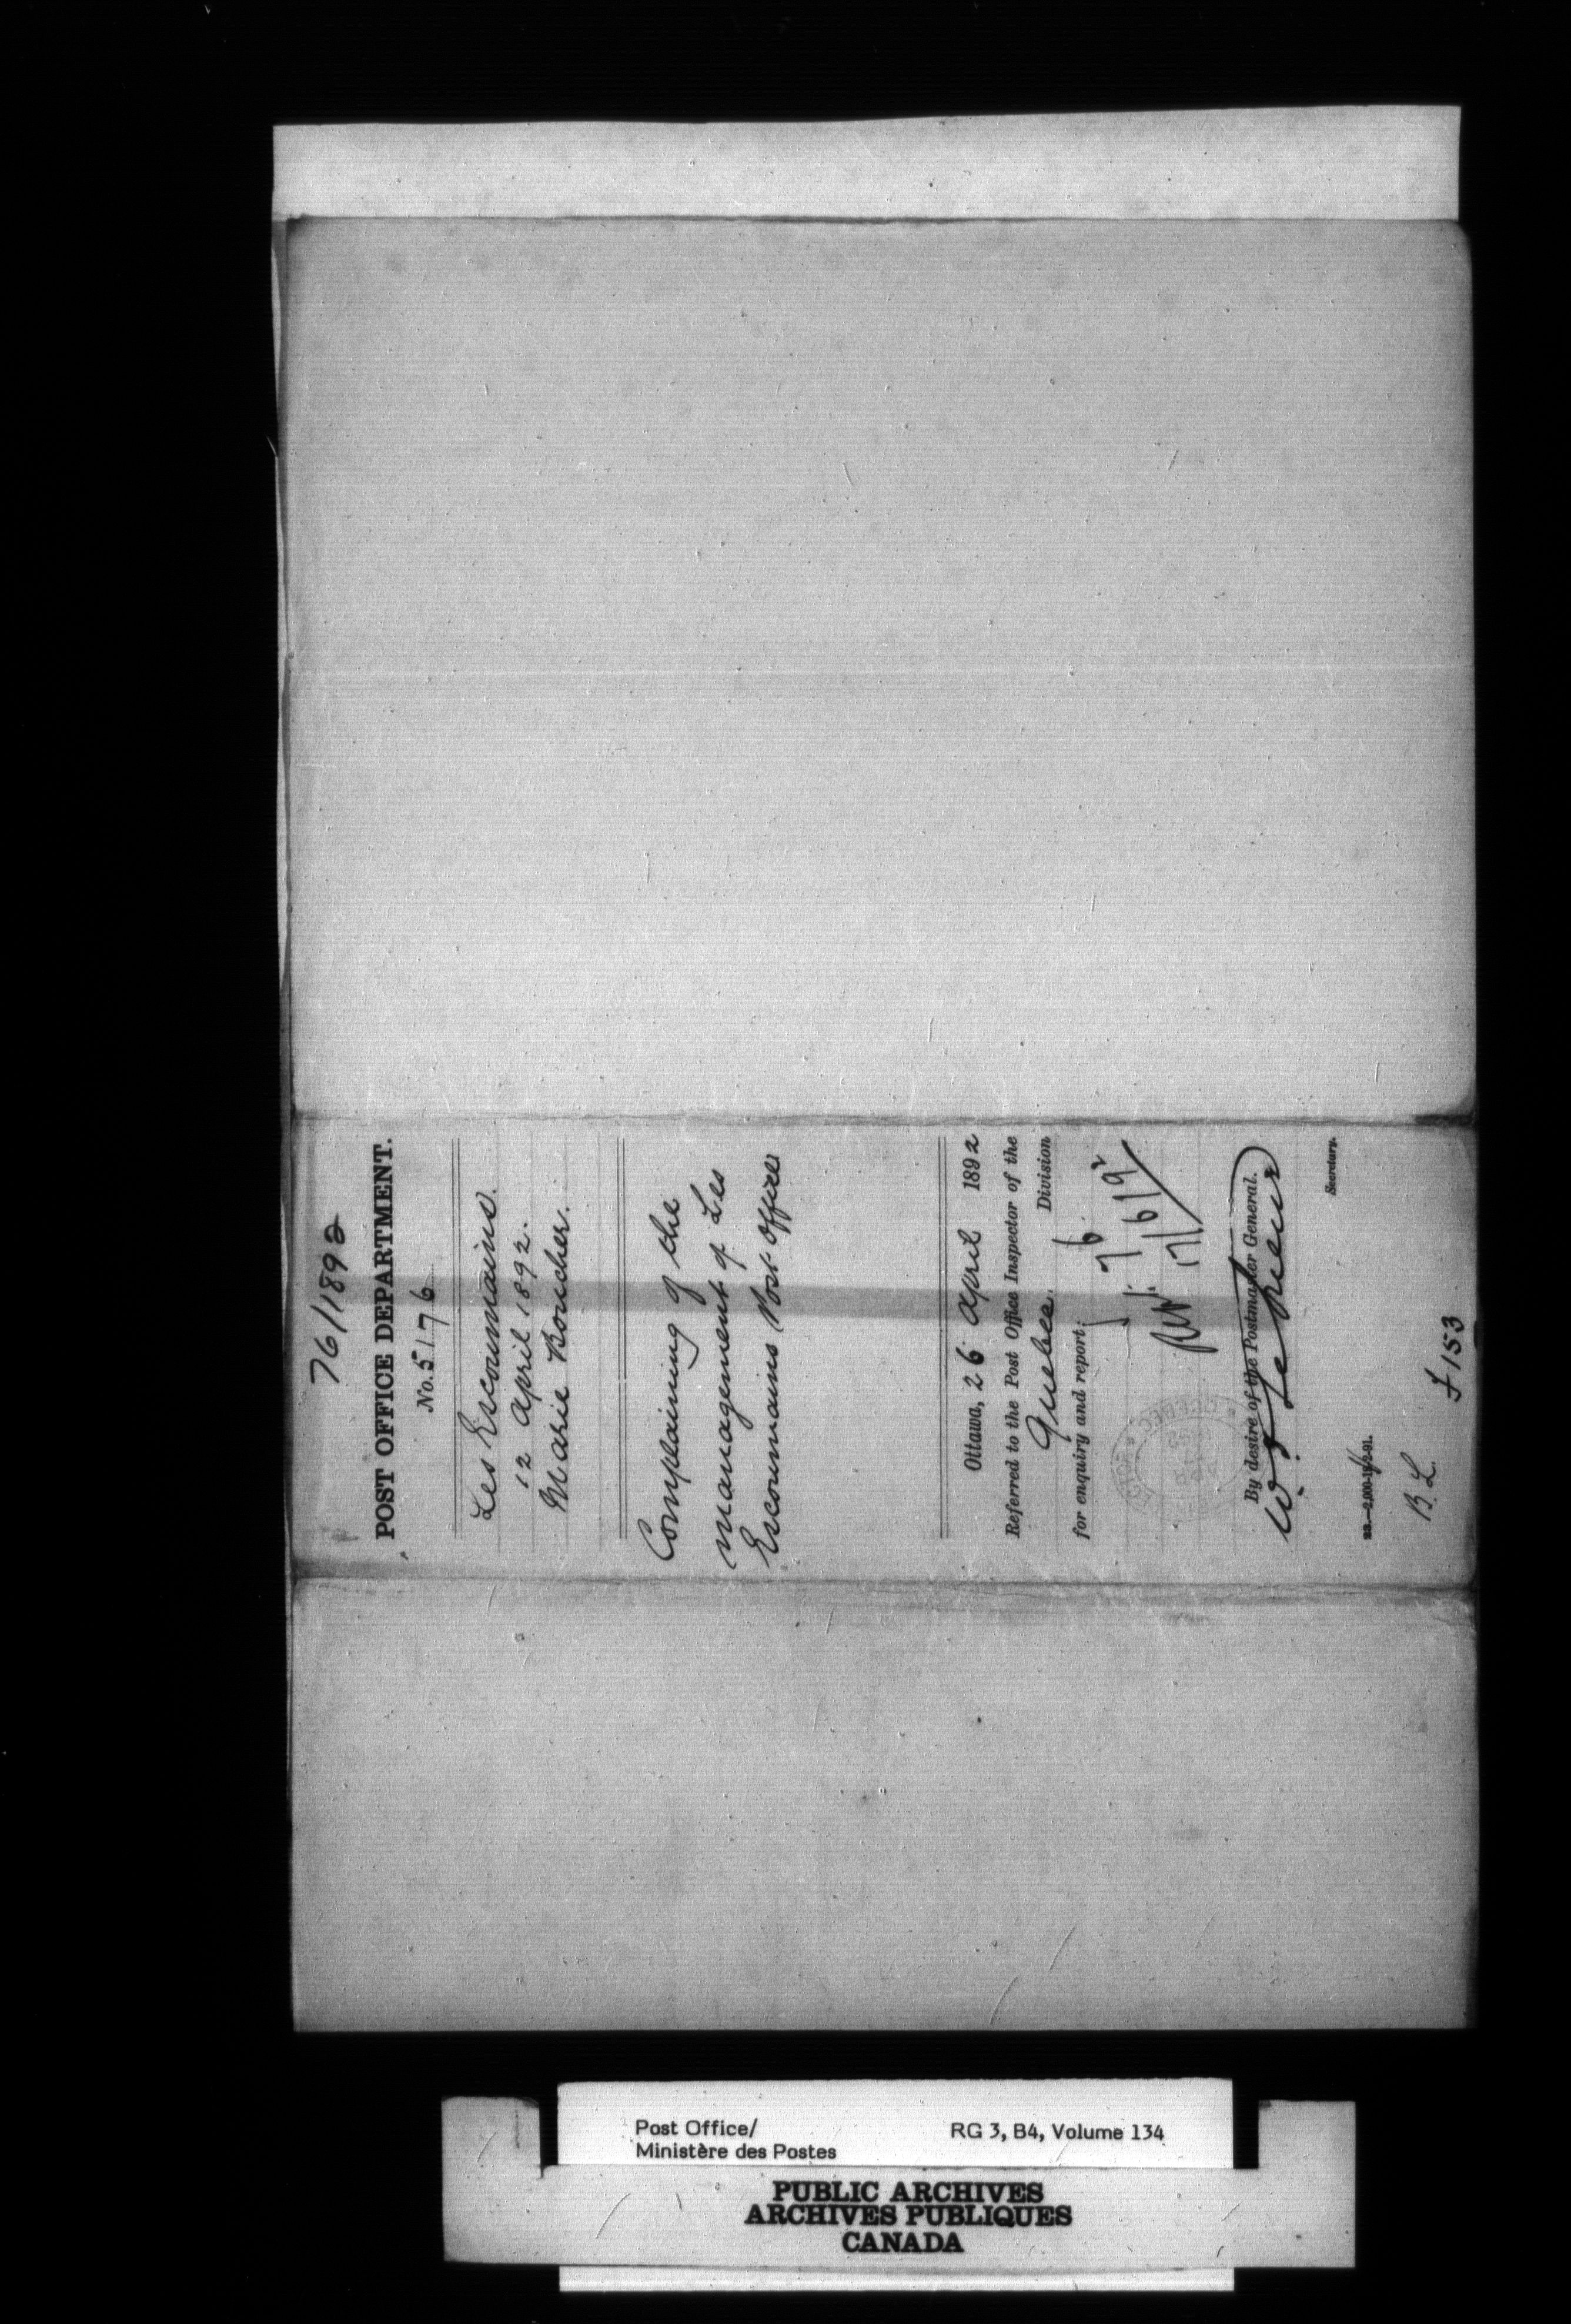 76/1892
POST OFFICE DEPARTMENT.
No. 5176
Les Escoumains.
12 April 1892.
Marie Boucher.
Complaining of the
management of Les
Escoumains Post Office
Ottawa, 26 April 1892
Referred to the Post Office Inspector of the
Quebec Division
for enquiry and report:
7/6/92
By desire of the Postmaster General.
Secretary.
B.L.
£ 153
Post Office/
Ministère des Postes
RG 3, B4, Volume 134
PUBLIC ARCHIVES
ARCHIVES PUBLIQUES
CANADA